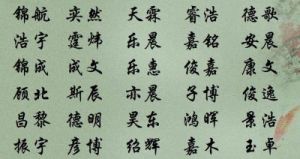 锦航 奕然 天霖 睿浩 德歌
浩宇 霆炜 乐晨 嘉铭 安晨
锦成 成文 乐惠 俊嘉 德成
顾北 斯辰 亦晨 子博 俊逸
昌黎 德明 昊东 鸿晖 景浩
振宇 彦博 绍辉 嘉木 玉卓